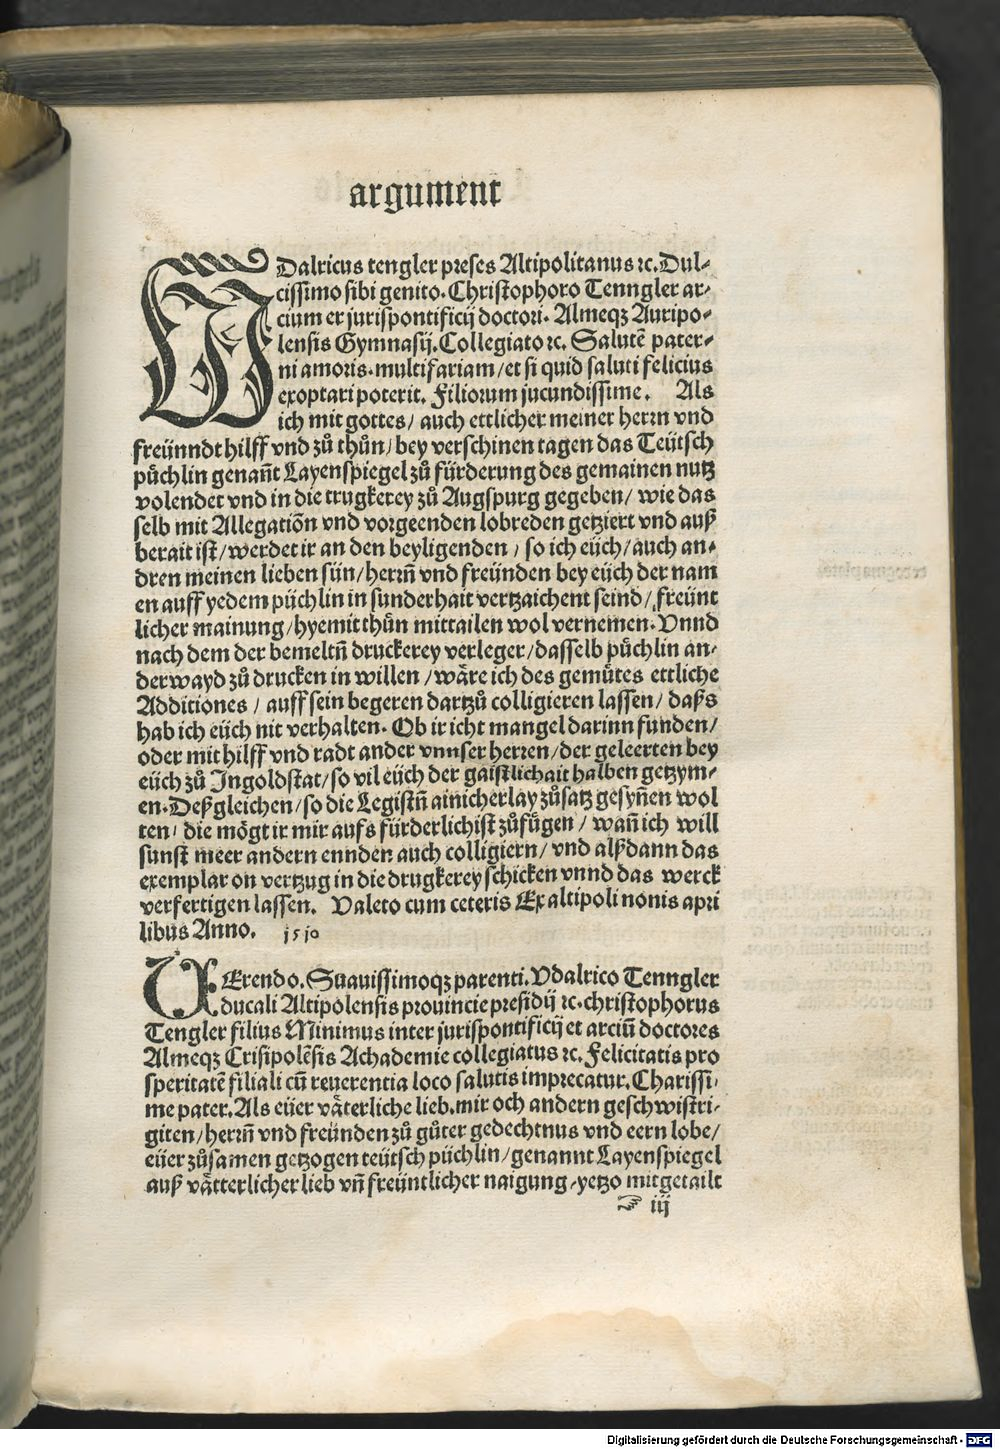 argument
VDalricus tengler preses Altipolitanus ⁊c. Dul⸗
cissimo sibi genito. Christophoro Tenngler ar⸗
cium et jurispontificij doctori. Almeqꝫ Auripo⸗
lensis Gymnasij. Collegiato ⁊c. Salutē pater⸗
ni amoris. multifariam/ et si quid saluti felicius
exoptari poterit. Filiorum jucundissime. Als
ich mit gottes/ auch ettlicher meiner herrn vnd
freünndt hilff vnd zů thůn/ bey verschinen tagen das Teütsch
püchlin genañt Layenspiegel zů fürderung des gemainen nutz
volendet vnd in die trugkerey zů Augspurg gegeben/ wie das
selb mit Allegatiōn vnd vorgeenden lobreden getziert vnd auß
berait ist/ werdet ir an den beyligenden/ so ich eüch/ auch an⸗
dren meinen lieben sün/ herrñ vnd freünden bey eüch der nam
en auff yedem püchlin in sunderhait vertzaichent seind/ freünt
licher mainung/ hyemit thůn mittailen wol vernemen. Vnnd
nach dem der bemeltñ druckerey verleger/ dasselb püchlin an⸗
derwayd zů drucken in willen/ wäre ich des gemůtes ettliche
Additiones/ auff sein begeren dartzů colligieren lassen/ daſs
hab ich eüch nit verhalten. Ob ir icht mangel darinn funden/
oder mit hilff vnd radt ander vnnser herren/ der geleerten bey
eüch zů Ingoldstat/ so vil eüch der gaistlichait halben getzym⸗
en. Deßgleichen/ so die Legistñ ainicherlay zůsatz gesyñen wol
ten/ die mögt ir mir aufs fürderlichist zůfügen/ wañ ich will
sunst meer andern ennden auch colligiern/ vnd alßdann das
exemplar on vertzug in die drugkerey schicken vnnd das werck
verfertigen lassen. Valeto cum ceteris Ex altipoli nonis apri
libus Anno. 1510
VErendo. Suauissimoqꝫ parenti. Vdalrico Tenngler
ducali Altipolensis prouincie presidij ⁊c. christophorus
Tengler filius Minimus inter jurispontificij et arciū doctores
Almeqꝫ Crisipolēsis Achademie collegiatus ⁊c. Felicitatis pro
speritatē filiali cū reuerentia loco salutis imprecatur. Charissi⸗
me pater. Als eüer väterliche lieb. mir och andern geschwistri⸗
giten/ herrñ vnd freünden zů gůter gedechtnus vnd eern lobe/
eüer zůsamen getzogen teütsch püchlin/ genannt Layenspiegel
auß vätterlicher lieb vñ freüntlicher naigung/ yetzo mitgetailt
☞ iij
Digitalisierung gefördert durch die Deutsche Forschungsgemeinschaft - DFG